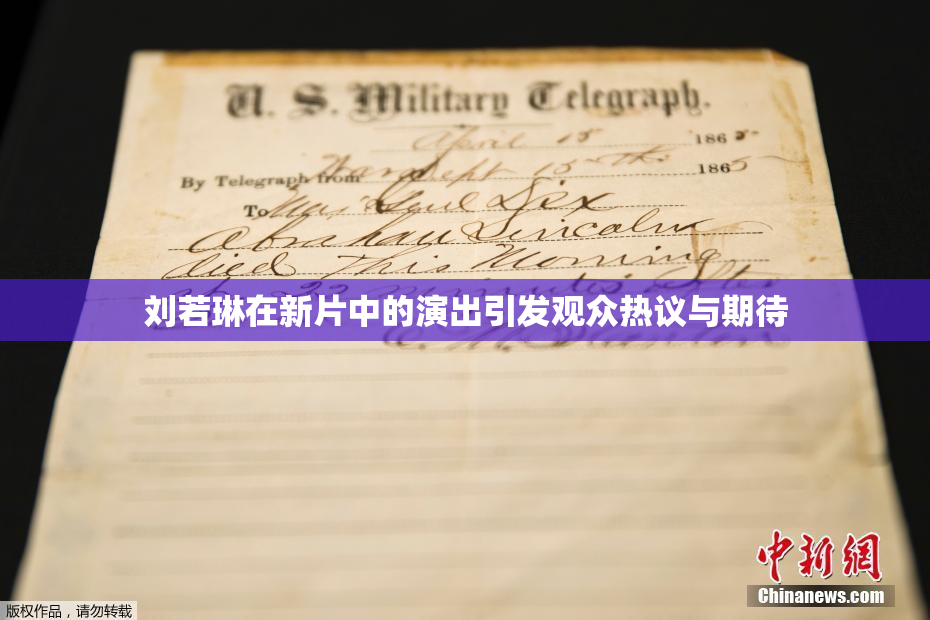 U. S. Military Telegraph.
April 15 1865
By Telegraph from War Dept 15th 1865
To Maj Genl Dix
Abraham Lincoln
died This Morning
at 22 minutes after
刘若琳在新片中的演出引发观众热议与期待
E. M. Stanton
中新網
Chinanews.com
版权作品，请勿转载